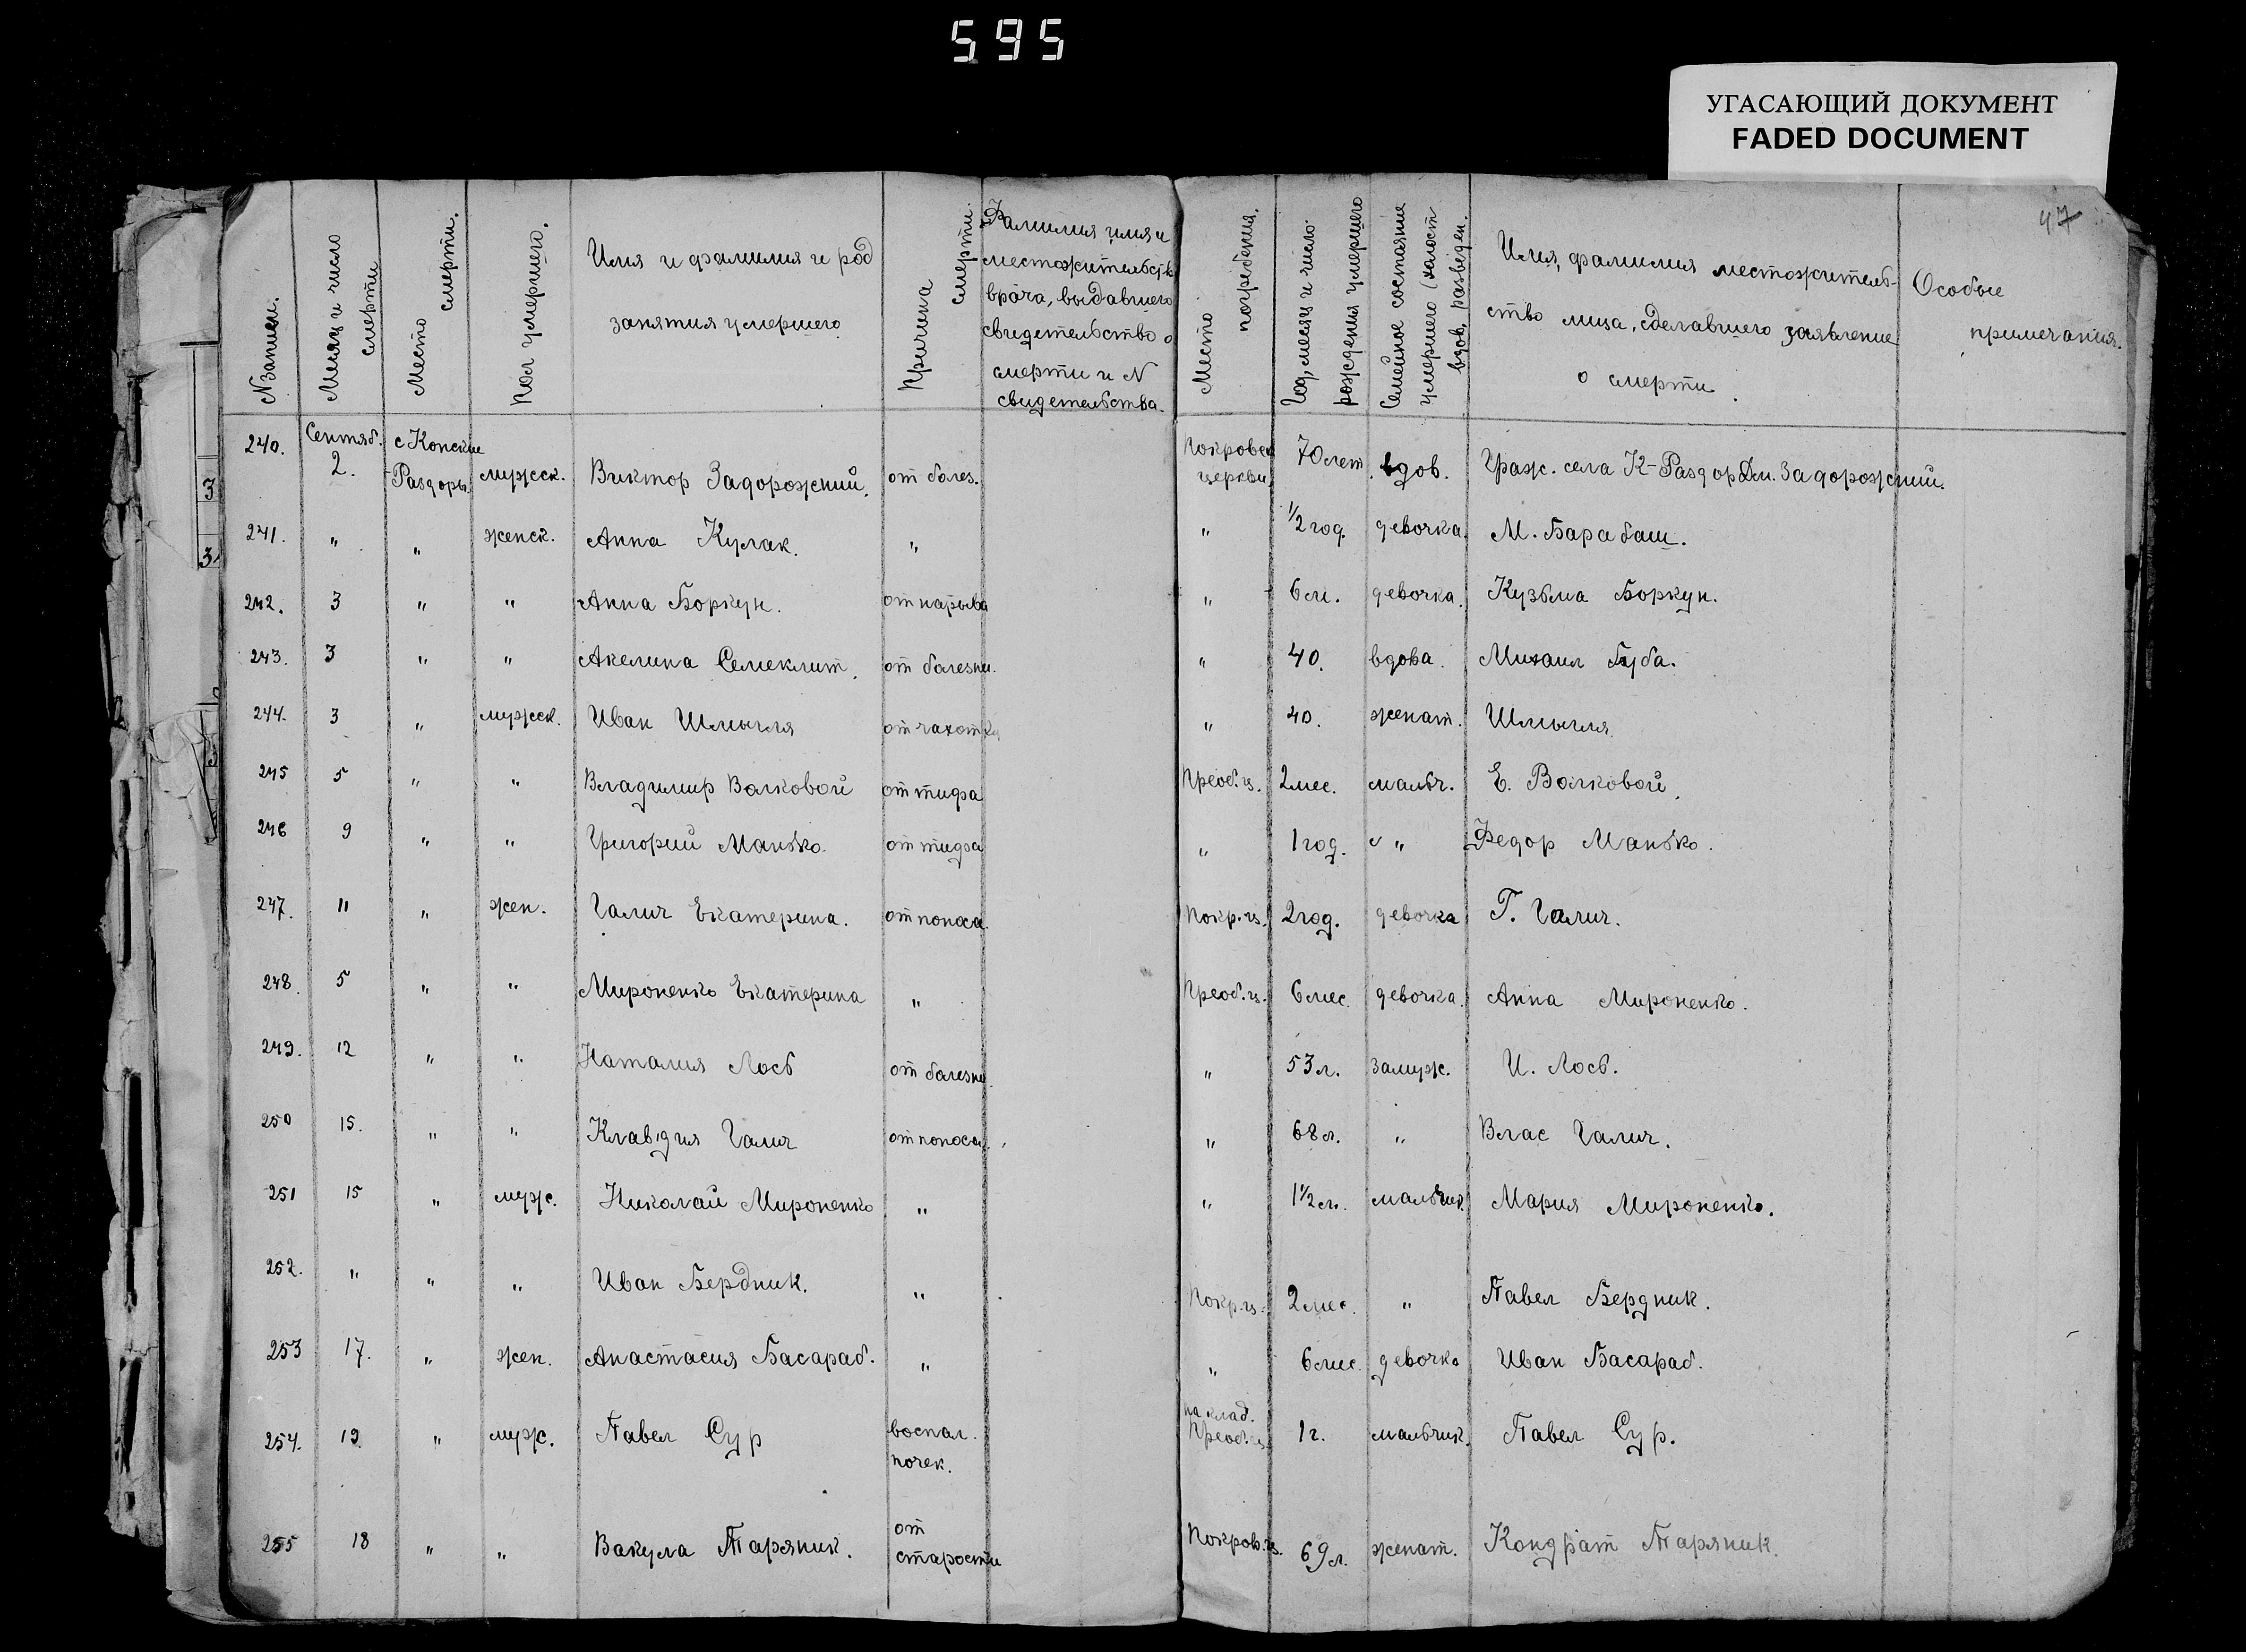 595
УГАСАЮЩИЙ ДОКУМЕНТ
FADED DOCUMENT
47
№ записи.
Месяц и число смерти
Место смерти.
Пол умершего.
Имя и фамилия и род занятия умершего
Причина смерти.
Фамилия имя и местожительств врача, выдавшего свидетельство о смерти и N свидетельства.
Место погребения.
Год, месяц и число рождения умершего
Семейное состояние умершего (холост вдов, разведен.
Имя, фамилия местожитель-ство лица, сделавшего заявление о смерти.
Особые примечания.
240. Сентяб. 2. с Конские Раздоры. мужск. Виктор Задорожний. от болез. Покровск церкви, 70 лет вдов. Граж. села К-Раздор Дм. Задорожний.
241. " " женск. Анна Кулак. " " 1/2 год. девочка. М. Барабаш.
242. 3 " " Анна Боркун. от нарыва " 6 м. девочка. Кузьма Боркун.
243. 3 " " Акелина Семеклит. от болезни. " 40. вдова. Михаил Губа.
244. 3 " мужск. Иван Шмыгля от чахотки " 40. женат. Шмыгля
245 5 " " Владимир Волковой от тифа Преоб. ц. 2 мес. мальч. Е. Волковой.
246 9 " " Григорий Манько от тифа " 1 год. " Федор Манько.
247. 11 " жен. Галич Екатерина. от поноса. Покр. ц. 2 год. девочка Г. Галич.
248. 5 " " Мироненко Екатерина " Преоб. ц. 6 мес. девочка. Анна Мироненко.
249. 12 " " Наталия Лось от болезни. " 53 л. замуж. И. Лось.
250 15. " " Клавдия Галич от поноса. " 68 л. " Влас Галич.
251 15 " муж. Николай Мироненко " " 1 1/2 л. мальчик. Мария Мироненко.
252. " " " Иван Бердник. " Покр. ц. 2 мес. " Павел Бердник.
253 17. " жен. Анастасия Басараб. " " 6 мес. девочка Иван Басараб.
254. 19 " муж. Павел Сур воспал. почек. на клад. Преоб. ц. 1 г. мальчик. Павел Сур.
255 18 " " Вакула Таряник. от старости Покров. ц. 69 л. женат. Кондрат Таряник.